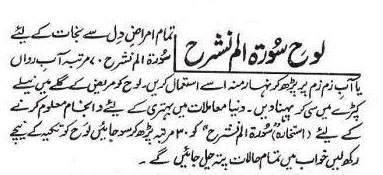 لوح سُورۃ الم نشرح
تمام امراضِ دل سے نجات کے لئے
سُورۃ الم نشرح، ۷۰ مرتبہ آب رواں
یا آبِ زم زم پر پڑھ کر نہار منہ اسے استعمال کریں۔ لوح کو مریض کے گلے میں نیلے
کپڑے میں سی کر پہنا دیں۔ دنیا معاملات میں بہتری کے لئے و انجام معلوم کرنے
کے لئے (استخارہ) سُورۃ الم نشرح" کو ۳۰ مرتبہ پڑھ کر سو جائیں لوح کو تکیہ کے نیچے
رکھ لیں خواب میں تمام حالات پتہ چل جائیں گے۔